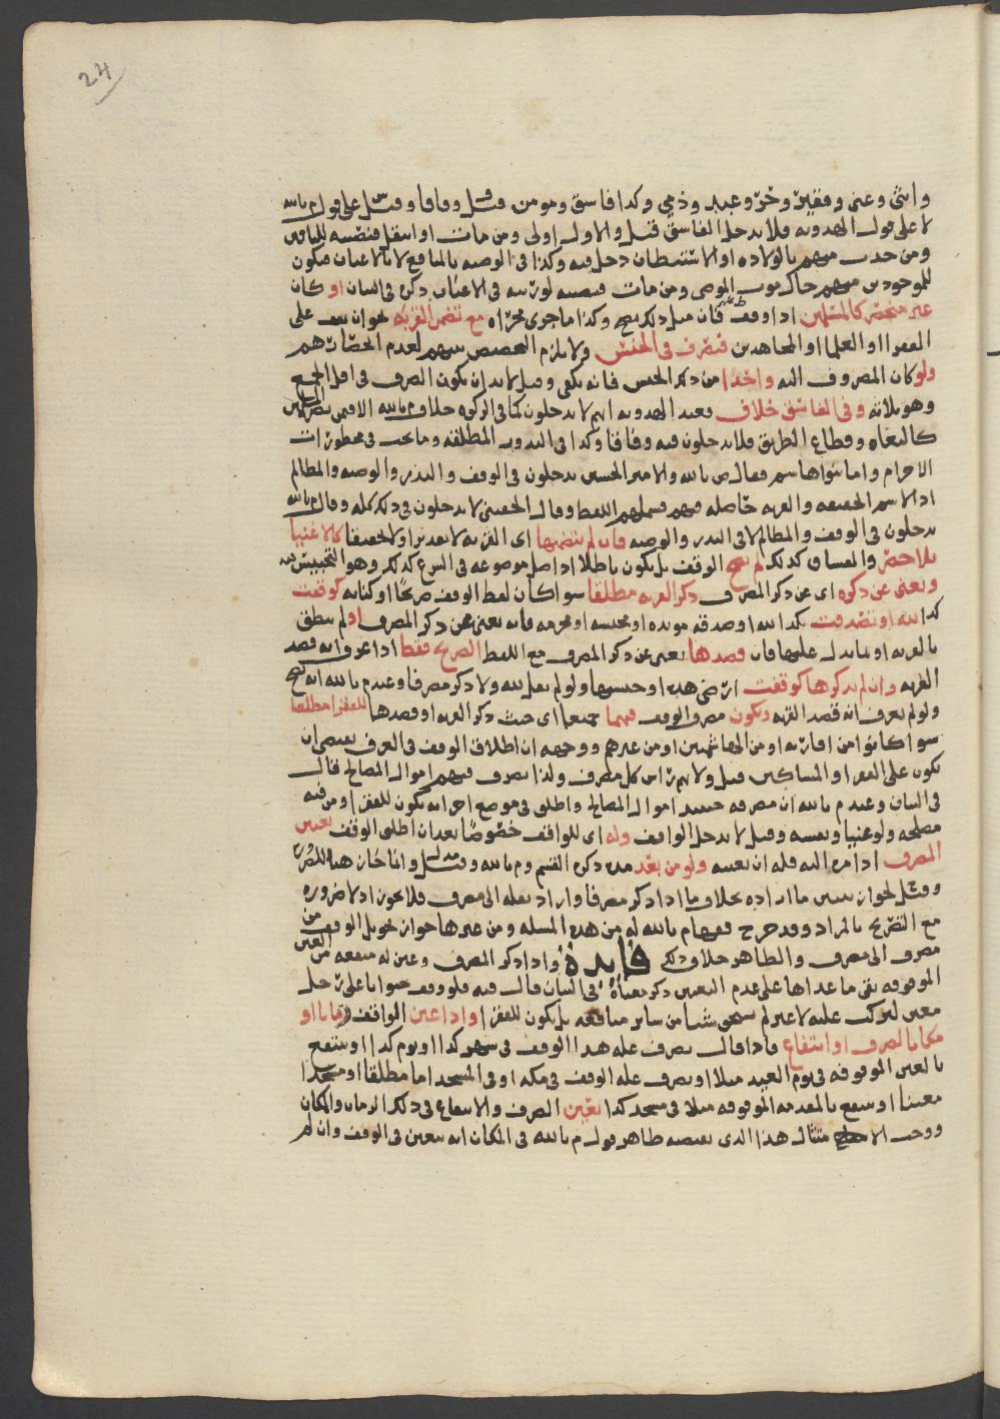 24
وانثى وغنى وفقير وحر وعبد وذمي وكذا فاسق ومومن قيل وفاقا وقيل على قول م بالله
لا على قول الهدويه فلا يدخل الفاسق قيل والاول اولى ومن مات او انتقل فنصيبه للباقين
ومن حدث منهم بالولاده او الاستيطان دخل فيه وكذا في الوصيه بالمنافع لا بالاعيان فيكون
للموجودين منهم حال موت الموصى ومن مات فنصيبه لورثته في الاعيان ذكره في البيان او كان
غير منحصر كالمسلمين اذا وقف فان مثل ذلك يصح وكذا ما جرى مجراه مع تضمن القربه نحو ان يقف على
الفقرا او العلما او المجاهدين فيصرف في الجنس ولا يلزم التحصيص بينهم لعدم انحصارهم
ولو كان المصروف اليه واحدا من ذلك الجنس فانه يكفي وقيل لا بد ان يكون الصرف في اقل الجمع
وهو ثلاثه وفي الفاسق خلاف فعند الهدويه انهم لا يدخلون كما في الزكوه خلاف م بالله الا فيمن
كالبغاه وقطاع الطريق فلا يدخلون فيه وفاقا وكذا في النذور المطلقه وما يجب في محظورات
الاحرام واما بنوا هاشم فقال ص بالله والامير الحسين يدخلون في الوقف والنذر والوصيه والمظالم
اذ الاسم الحقيقه والقربه حاصله فيهم فيشملهم اللفظ وقال الحقيني لا يدخلون في ذلك كله وقال م بالله
يدخلون في الوقف والمظالم لا في النذر والوصيه فان لم يتضمنها اى القربه لا تقديرا ولا تحقيقا كالاغنيا
بلا حصر والفساق كذلك لم يصح الوقف بل يكون باطلا اذ اصل موضوعه في الشرع كذلك وهو التحبيس
ويغنى عن ذكره اى عن ذكر المصرف ذكر القربه مطلقا سوا كان لفظ الوقف صريحا او كنايه كوقفت
كذا لله او تصدقت بكذا لله او صدقه مؤبده او محبسه او محرمه فانه يغنى عن ذكر المصرف او لم ينطق
بالقربه او بما يدل عليها فان قصدها يغنى عن ذكر المصرف مع اللفظ الصريح فقط اذا عرف انه قصد
القربه وان لم يذكرها كوقفت ارضي هذه او حبستها ولو لم يقل لله ولا ذكر مصرفا وعند م بالله انه يصح
ولو لم يعرف انه قصد القربه ويكون مصرف الوقف فيهما جميعا اى حيث ذكر القربه او قصدها للفقرا مطلقا
سوا كانوا من اقاربه او من الهاشميين او من غيرهم ووجهه ان اطلاق الوقف في العرف يقتضى ان
يكون على الفقرا والمساكين قيل ولانهم راس كل مصرف ولذا يصرف فيهم اموال المصالح قال
في البيان وعند م بالله ان مصرفه حينئذ اموال المصالح واطلق في موضع اخر انه يكون للفقرا ومن فيه
مصلحه ولو غنيا ونفسه وقيل لا يدخل الواقف وله اى للواقف خصوصا بعد ان اطلق الوقف تعيين
المصرف اذ امره اليه فله ان يعينه ولو من بعد مده ذكره القسم وم بالله وقيل وانما جاز هنا للضرر
وقيل لجواز تبيين ما اراده بخلاف ما اذا ذكر مصرفا واراد نقله الى مصرف فلا يجوز اذ لا ضروره
مع التصريح بالمراد وقد خرج فقها م بالله له من هذه المسله ومن غيرها جواز تحويل الوقف من
مصرف الى مصرف والظاهر خلاف ذلك فايده واذا ذكر المصرف وعين له منفعه من العين
الموقوفه بقى ما عداها على عدم التعيين ذكر معناه في البيان قال فيه فلو وقف حيوانا على رجل
معين ليركب عليه لا غير لم يستحق شيئا من سائر منافعه بل يكون للفقرا واذا عين الواقف زمانا او
مكانا لصرف او انتفاع فاذا قال يصرف غله هذا الوقف في شهر كذا او يوم كذا او ينتفع
بالعين الموقوفه في يوم العيد مثلا او يصرف غله الوقف في مكه او في المسجد اما مطلقا او مسجدا
معينا او ينتفع بالمقدمه الموقوفه مثلا في مسجد كذا تعين الصرف والانتفاع في ذلك الزمان والمكان
مثال هذا الذى يقتضيه ظاهر قول م بالله في المكان انه يتعين في الوقف وان لم